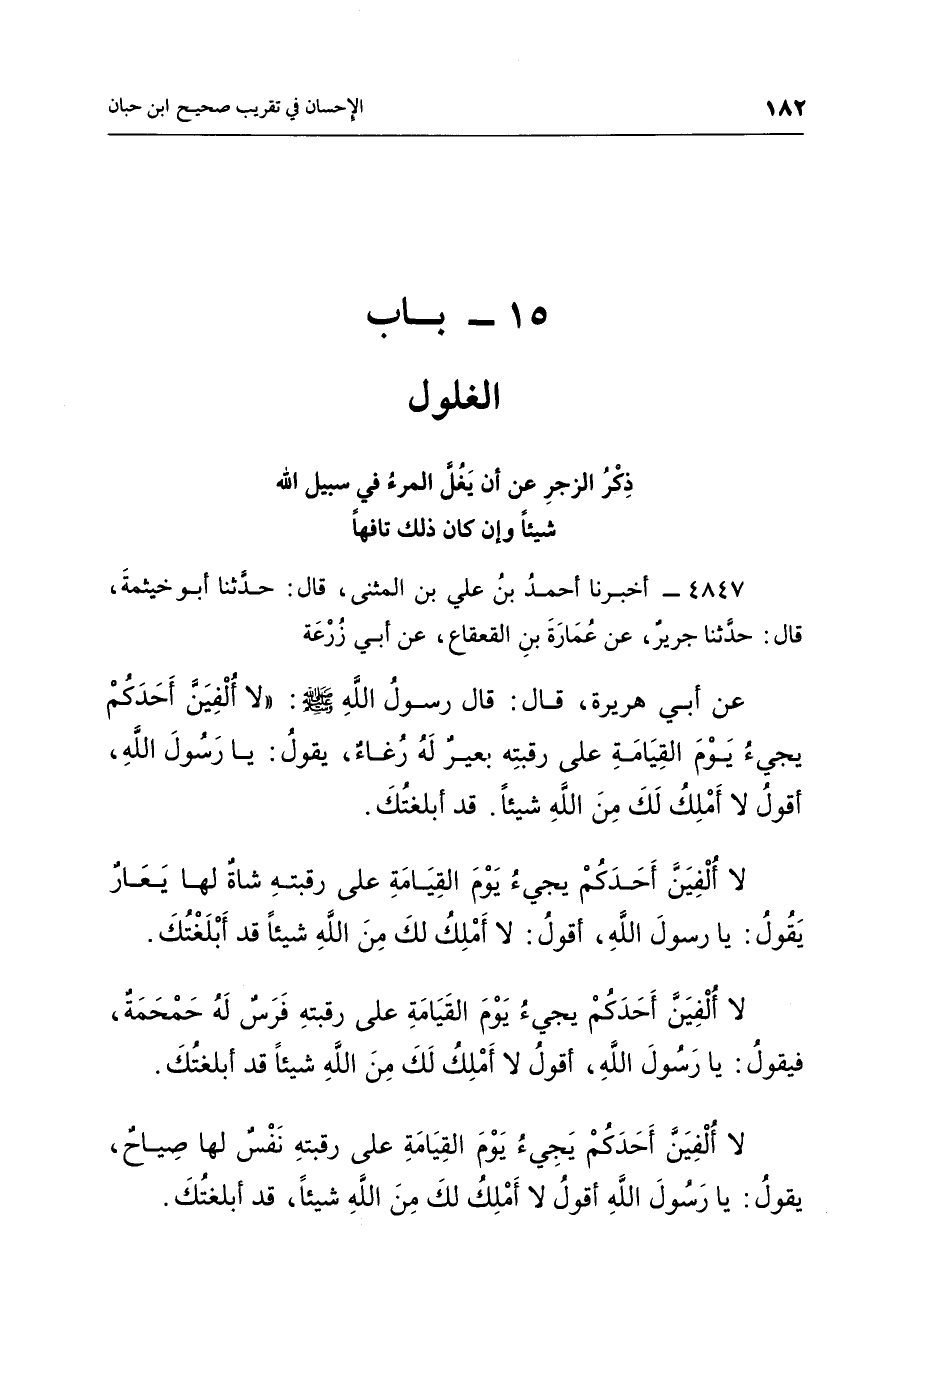 ١٨٢ الإحسان في تقريب صحيح ابن حبان
١٥ ـ بـاب
الغلول
ذِكْرُ الزجرِ عن أن يَغُلَّ المرءُ في سبيل الله
شيئاً وإن كان ذلك تافهاً
٤٨٤٧ ـ أخبرنا أحمدُ بنُ علي بن المثنى، قال: حدَّثنا أبو خيثمةَ،
قال: حدَّثنا جريرٌ، عن عُمَارَةَ بنِ القعقاع، عن أبي زُرْعَة
عن أبي هريرة، قال: قال رسولُ اللَّهِ ﷺ: «لا أُلْفِيَنَّ أَحَدَكُمْ
يجيءُ يَوْمَ القِيَامَةِ على رقبتِه بعيرٌ لَهُ رُغَاءٌ، يقولُ: يا رَسُولَ اللَّهِ،
أقولُ لا أَمْلِكُ لَكَ مِنَ اللَّهِ شيئاً. قد أبلغتُكَ.
لا أُلْفِيَنَّ أَحَدَكُمْ يجيءُ يَوْمَ القِيَامَةِ على رقبتهِ شاةٌ لها يَعَارٌ
يَقُولُ: يا رسولَ اللَّهِ، أقولُ: لا أَمْلِكُ لكَ مِنَ اللَّهِ شيئاً قد أَبْلَغْتُكَ.
لا أُلْفِيَنَّ أَحَدَكُمْ يجيءُ يَوْمَ القَيَامَةِ على رقبتهِ فَرَسٌ لَهُ حَمْحَمَةٌ،
فيقولُ: يا رَسُولَ اللَّهِ، أقولُ لا أَمْلِكُ لَكَ مِنَ اللَّهِ شيئاً قد أبلغتُكَ.
لا أُلْفِيَنَّ أَحَدَكُمْ يَجِيءُ يَوْمَ القِيَامَةِ على رقبتهِ نَفْسٌ لها صِياحٌ،
يقولُ: يا رَسُولَ اللَّهِ أقولُ لا أَمْلِكُ لكَ مِنَ اللَّهِ شيئاً، قد أبلغتُكَ.